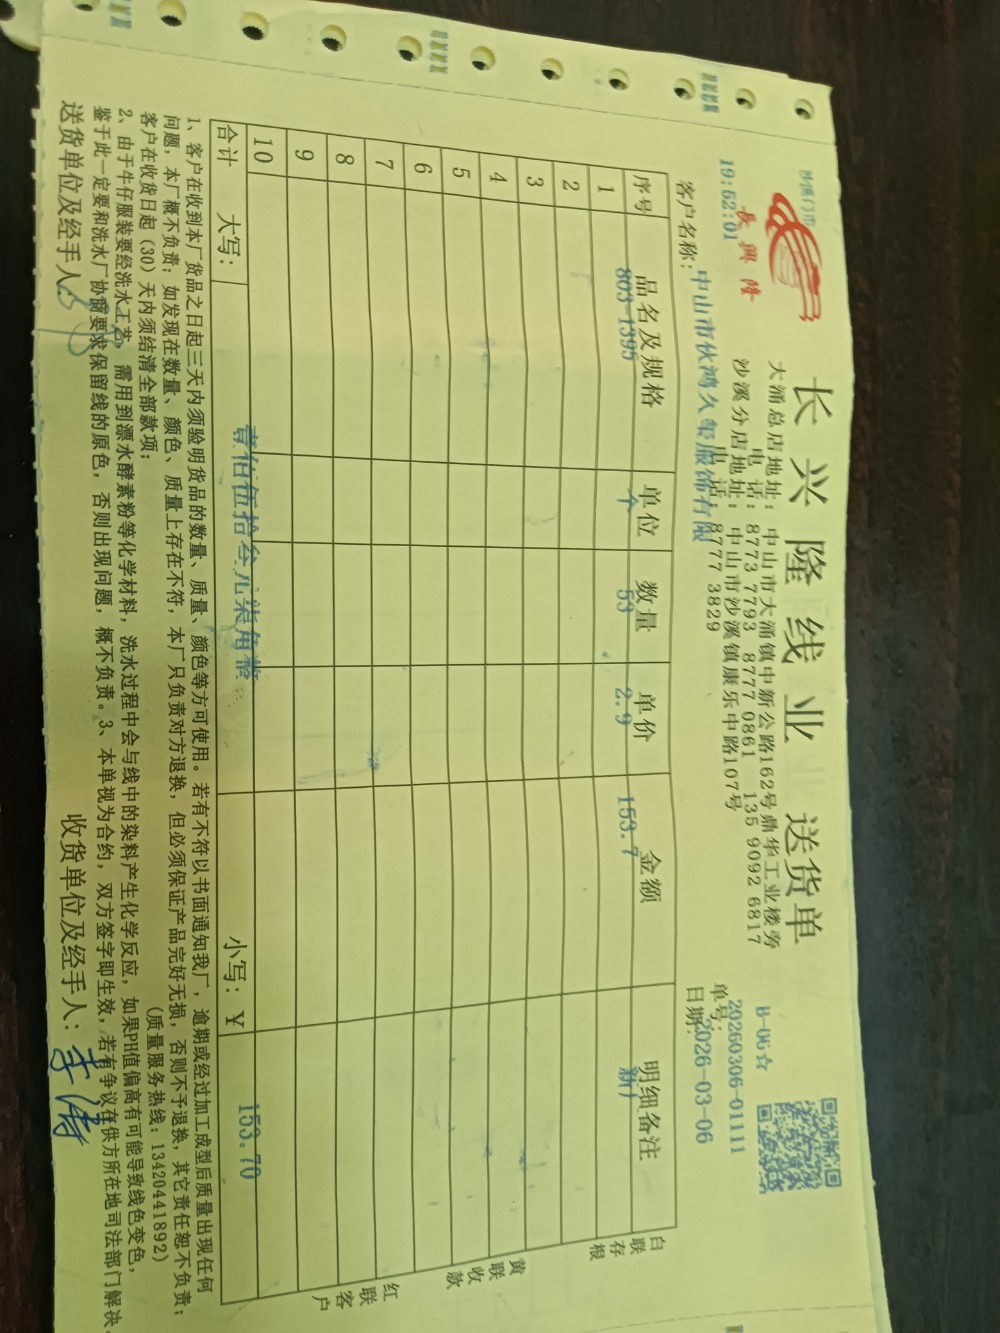 沙溪门市
長興隆
19:52:01
长兴隆线业 送货单
大涌总店地址：中山市大涌镇中新公路162号鼎华工业楼旁
电 话：8773 7793 8777 0861 135 9092 6817
沙溪分店地址：中山市沙溪镇康乐中路107号
电 话：8777 3829
B-06☆
单号：20260306-01111
日期：2026-03-06
客户名称：中山市伙鸿久玺服饰有限
序号 品名及规格 单位 数量 单价 金额 明细备注
1 803-1395 个 53 2.9 153.7 新厂
2
3
4
5
6
7
8
9
10
合计 大写：壹佰伍拾叁元柒角整 小写：¥ 153.70
白联存根
黄联收款
红联客户
1、客户在收到本厂货品之日起三天内须验明货品的数量、质量、颜色等方可使用。若有不符以书面通知我厂，逾期或经过加工成型后质量出现任何
问题，本厂概不负责；如发现在数量、颜色、质量上存在不符，本厂只负责对方退换，但必须保证产品完好无损，否则不予退换，其它责任恕不负责；
客户在收货日起（30）天内须结清全部款项；
（质量服务热线：13420441892）
2、由于牛仔服装要经洗水工艺，需用到漂水酵素粉等化学材料，洗水过程中会与线中的染料产生化学反应，如果PH值偏高有可能导致线色变色，
鉴于此一定要和洗水厂协商要求保留线的原色，否则出现问题，概不负责。3、本单视为合约，双方签字即生效，若有争议在供方所在地司法部门解决。
送货单位及经手人：
收货单位及经手人：李涛